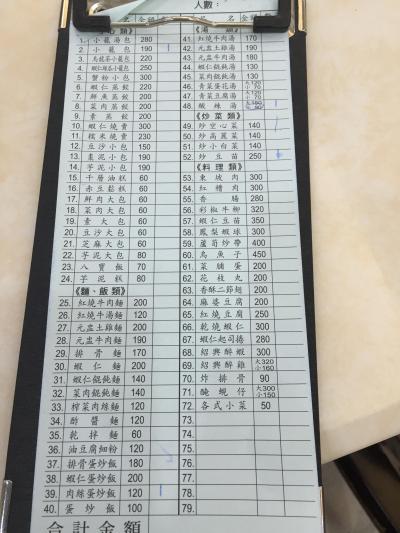 人數：
點心類》 金額
1. 小籠湯包 280
2. 小籠包 190 1
3. 烏龍茶小籠包 220
4. 蝦仁絲瓜小籠包 250
5. 蟹粉小包 300
6. 蝦仁蒸餃 220
7. 鮮魚蒸餃 200
8. 菜肉蒸餃 200
9. 素蒸餃 200
10. 蝦仁燒賣 300
11. 糯米燒賣 230
12. 豆沙小包 150
13. 棗泥小包 190
14. 芋泥小包 190
15. 千層油糕 60
16. 赤豆鬆糕 60
17. 鮮肉大包 60
18. 菜肉大包 60
19. 素大包 60
20. 豆沙大包 60
21. 芝麻大包 60
22. 芋泥大包 80
23. 八寶飯 70
24. 芋泥糕 80
《麵、飯類》
25. 紅燒牛肉麵 200
26. 紅燒牛湯麵 120
27. 元盅土雞麵 200
28. 元盅牛肉麵 200
29. 排骨麵 170
30. 蝦仁麵 200
31. 蝦仁餛飩麵 140
32. 菜肉餛飩麵 140
33. 榨菜肉絲麵 120
34. 酢醬麵 120
35. 乾拌麵 60
36. 油豆腐細粉 120
37. 排骨蛋炒飯 180
38. 蝦仁蛋炒飯 200
39. 肉絲蛋炒飯 120 1
40. 蛋炒飯 100
合計金額
《湯類》
41. 紅燒牛肉湯 170
42. 元盅土雞湯 190
43. 元盅牛肉湯 180
44. 蝦仁餛飩湯 130
45. 菜肉餛飩湯 130
46. 青菜蛋花湯 大120 小70
47. 青菜豆腐湯 大120 小70
48. 酸辣湯 大150 小90
《炒菜類》
49. 炒空心菜 140
50. 炒高麗菜 140
51. 炒小白菜 140
52. 炒豆苗 250
《料理類》
53. 東坡肉 300
54. 紅糟肉 300
55. 香腸 280
56. 彩椒牛柳 320
57. 蝦仁豆苗 350
58. 鳳梨蝦球 300
59. 蘆筍炒帶 400
60. 烏魚子 450
61. 菜脯蛋 200
62. 花枝丸 200
63. 香酥二節翅 200
64. 麻婆豆腐 200
65. 蝦仁豆腐 250
66. 乾燒蝦仁 300
67. 蝦仁起司捲 280
68. 紹興醉蝦 300
69. 紹興醉雞 大320 小160
70. 炸排骨 90
71. 醃蜆仔 大300 小150
72. 各式小菜 50
73.
74.
75.
76.
77.
78.
79.